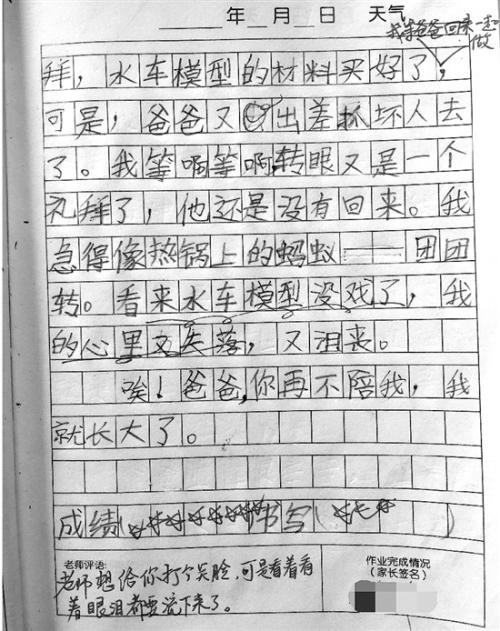 年 月 日 天气
我等爸爸回来一起做
拜，水车模型的材料买好了，
可是，爸爸又出差抓坏人去
了。我等啊等啊，转眼又是一个
礼拜了，他还是没有回来。我
急得像热锅上的蚂蚁——团团
转。看来水车模型没戏了，我
的心里又失落，又沮丧。
唉！爸爸，你再不陪我，我
就长大了。
成绩(☆☆☆☆☆☆书写(☆☆☆)
老师评语:
老师想给你打个笑脸，可是看着看
着眼泪都要流下来了。
作业完成情况
(家长签名)